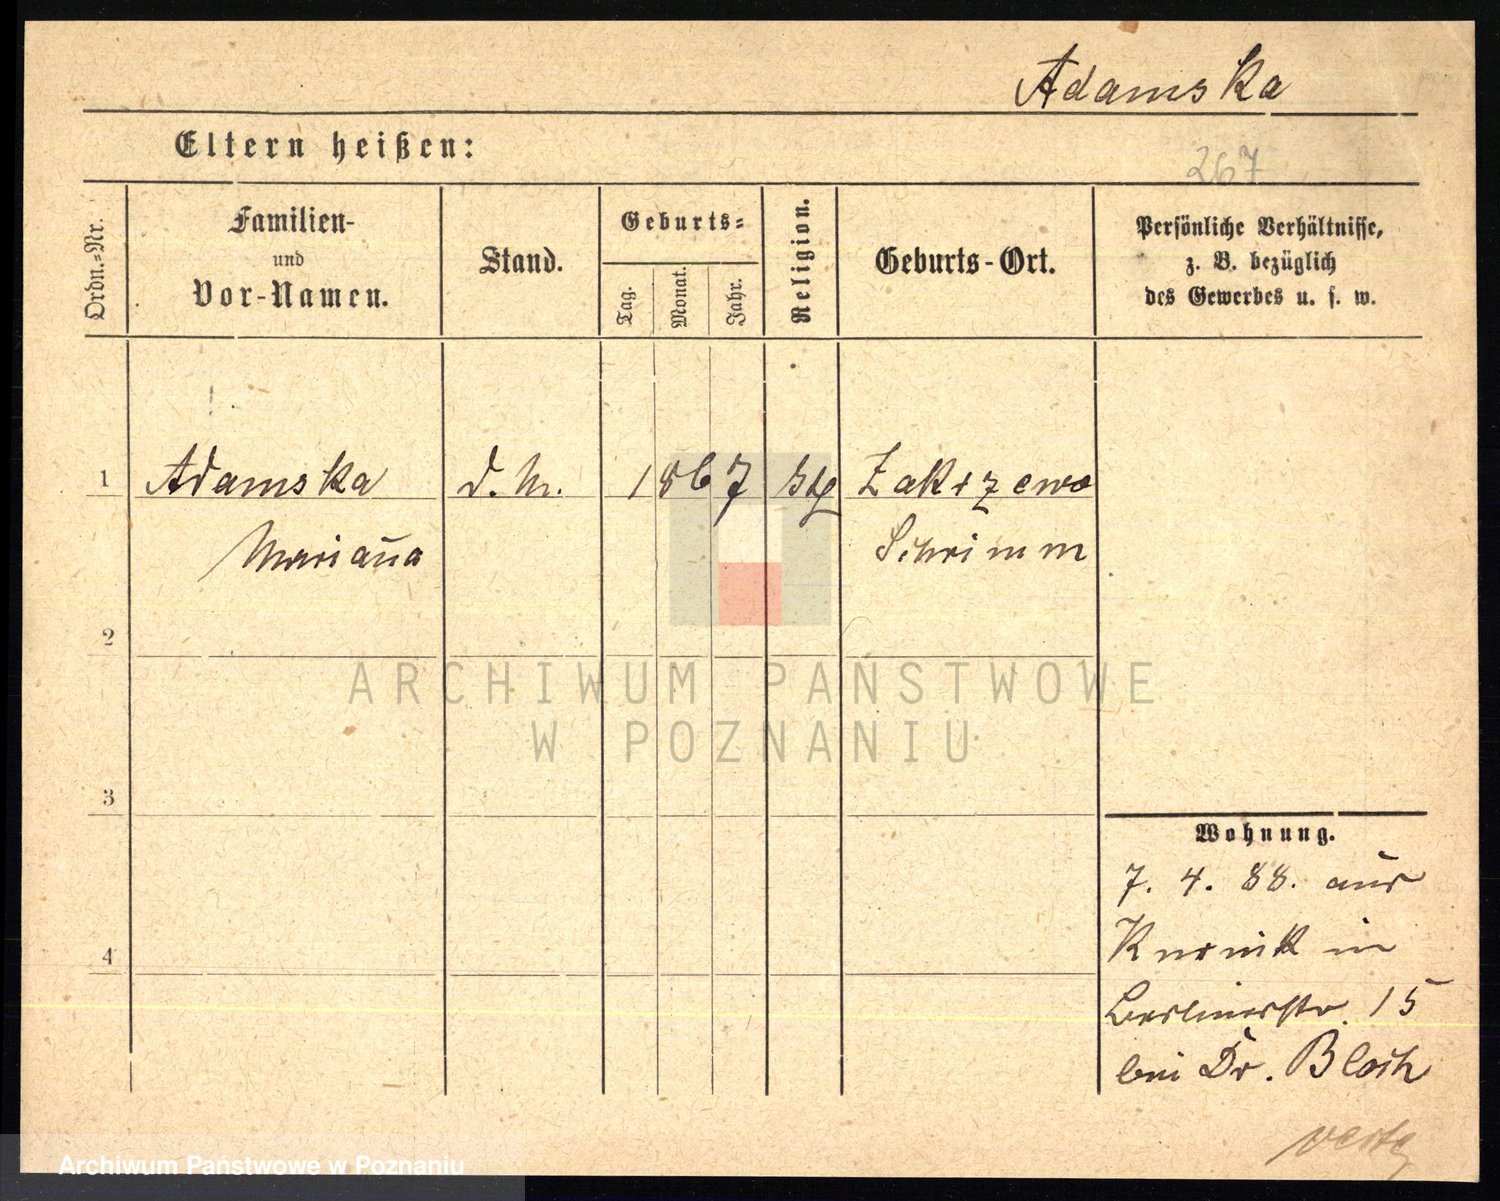 Adamska
Eltern heißen:
267
Ordn.-Nr.
Familien-
und
Vor-Namen.
Stand.
Geburts-
Tag.
Monat.
Jahr.
Religion.
Geburts-Ort.
Persönliche Verhältnisse,
z. B. bezüglich
des Gewerbes u. s. w.
1 Adamska d. M. 1867 kth Zakrzewo
Marianna Schrimm
2
ARCHIWUM PAŃSTWOWE
W POZNANIU
3
Wohnung.
7. 4. 88. aus
Kurnik in
4
Berlinerstr. 15
bei Dr. Bloch
verte
Archiwum Państwowe w Poznaniu